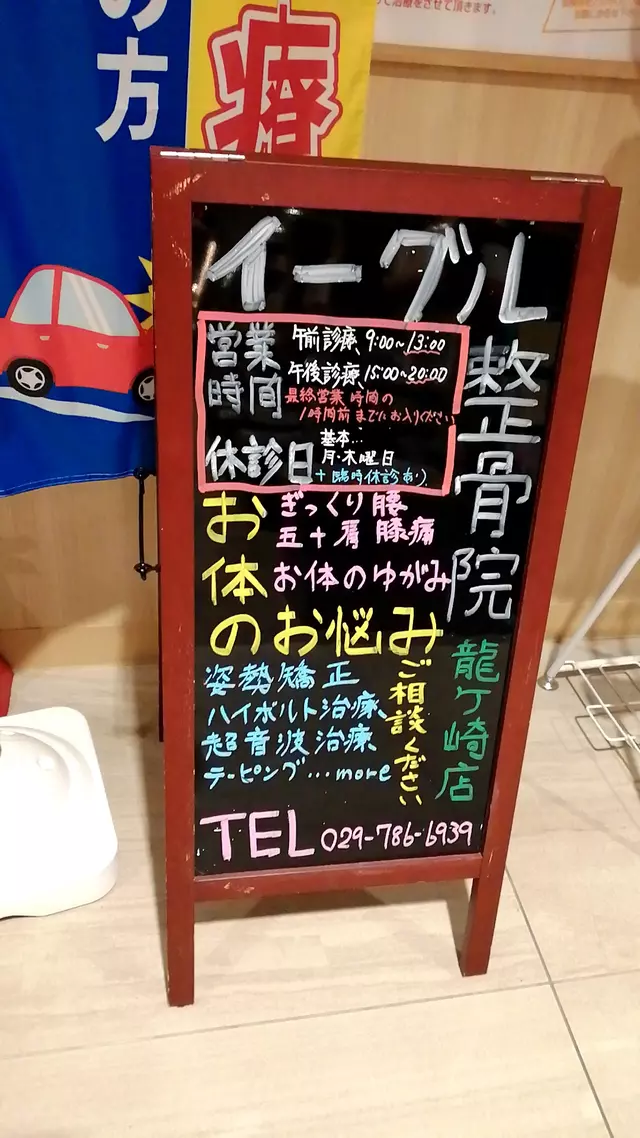 の方
療
て治療をさせて頂きます。
イーグル
整骨院
龍ケ崎店
営業時間
午前診療 9:00~13:00
午後診療 15:00~20:00
最終営業時間の
1時間前までにお入りください
休診日
基本…
月・木曜日
+臨時休診あり
お体のお悩み
ぎっくり腰
五十肩 膝痛
お体のゆがみ
ご相談ください
姿勢矯正
ハイボルト治療
超音波治療
テーピング…more
TEL 029-786-6939